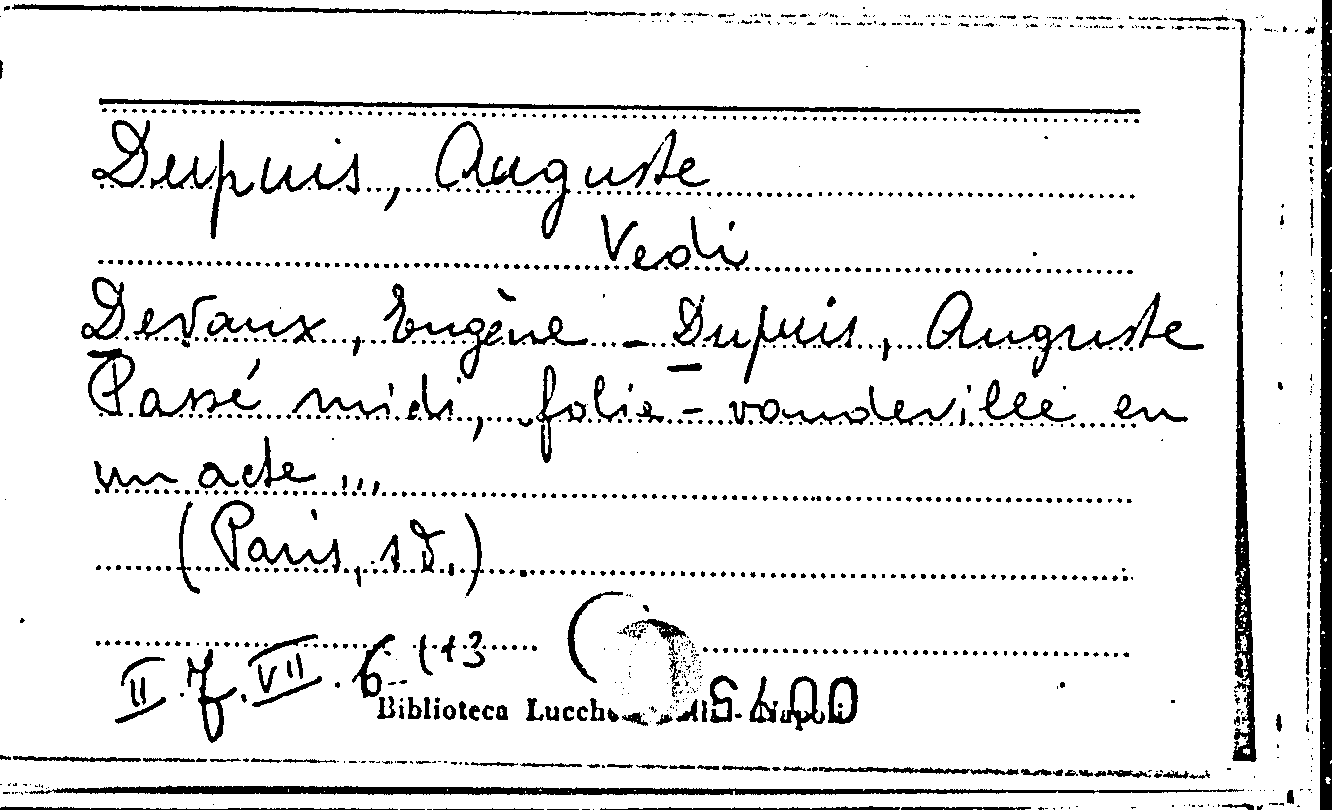 Dupuis, Auguste
Vedi
Devaux, Eugène - Dupuis, Auguste
Passé midi, folie-vaudeville en
un acte ...
(Paris, s.d.)
II. F. VII. 6
Biblioteca Napoli